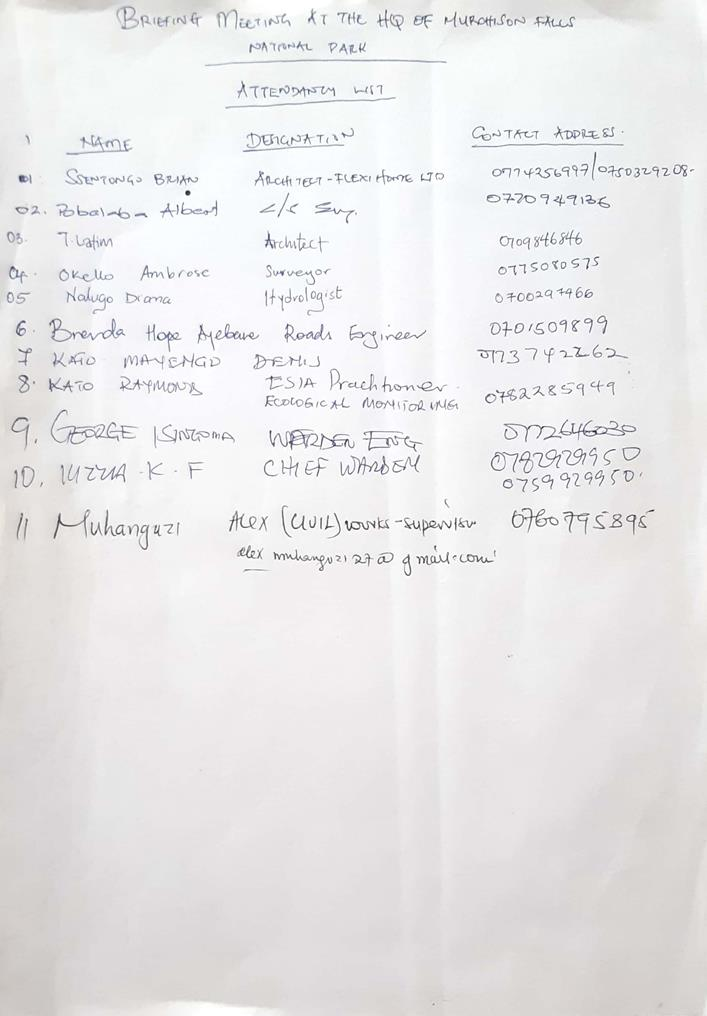 BRIEFING MEETING AT THE HQ OF MURCHISON FALLS
NATIONAL PARK
ATTENDANCY LIST
NAME DESIGNATION CONTACT ADDRESS.
01. SSENTONGO BRIAN ARCHITECT-FLEXI HOME LTD 0774256997/0750329208-
02. Albert 0770949136
03. T. Latim Architect 0709846846
04. Okello Ambrose Surveyor 0775080575
05 Nalugo Diana Hydrologist 0700297466
6. Brenda Hope Ayebare Roads Engineer 0701509899
7 KATO MAYENGO DENIS 0773742262
8. KATO RAYMOND ESIA Practitioner. 0782285949
ECOLOGICAL MONITORING
9. GEORGE ISINGOMA WARDEN ENG 0772646030
10. K. F CHIEF WARDEN 0782929950
0759929950.
11 Muhanguzi Alex (CIVIL) works-supervisor 0760795895
alex muhanguzi27@gmail.com